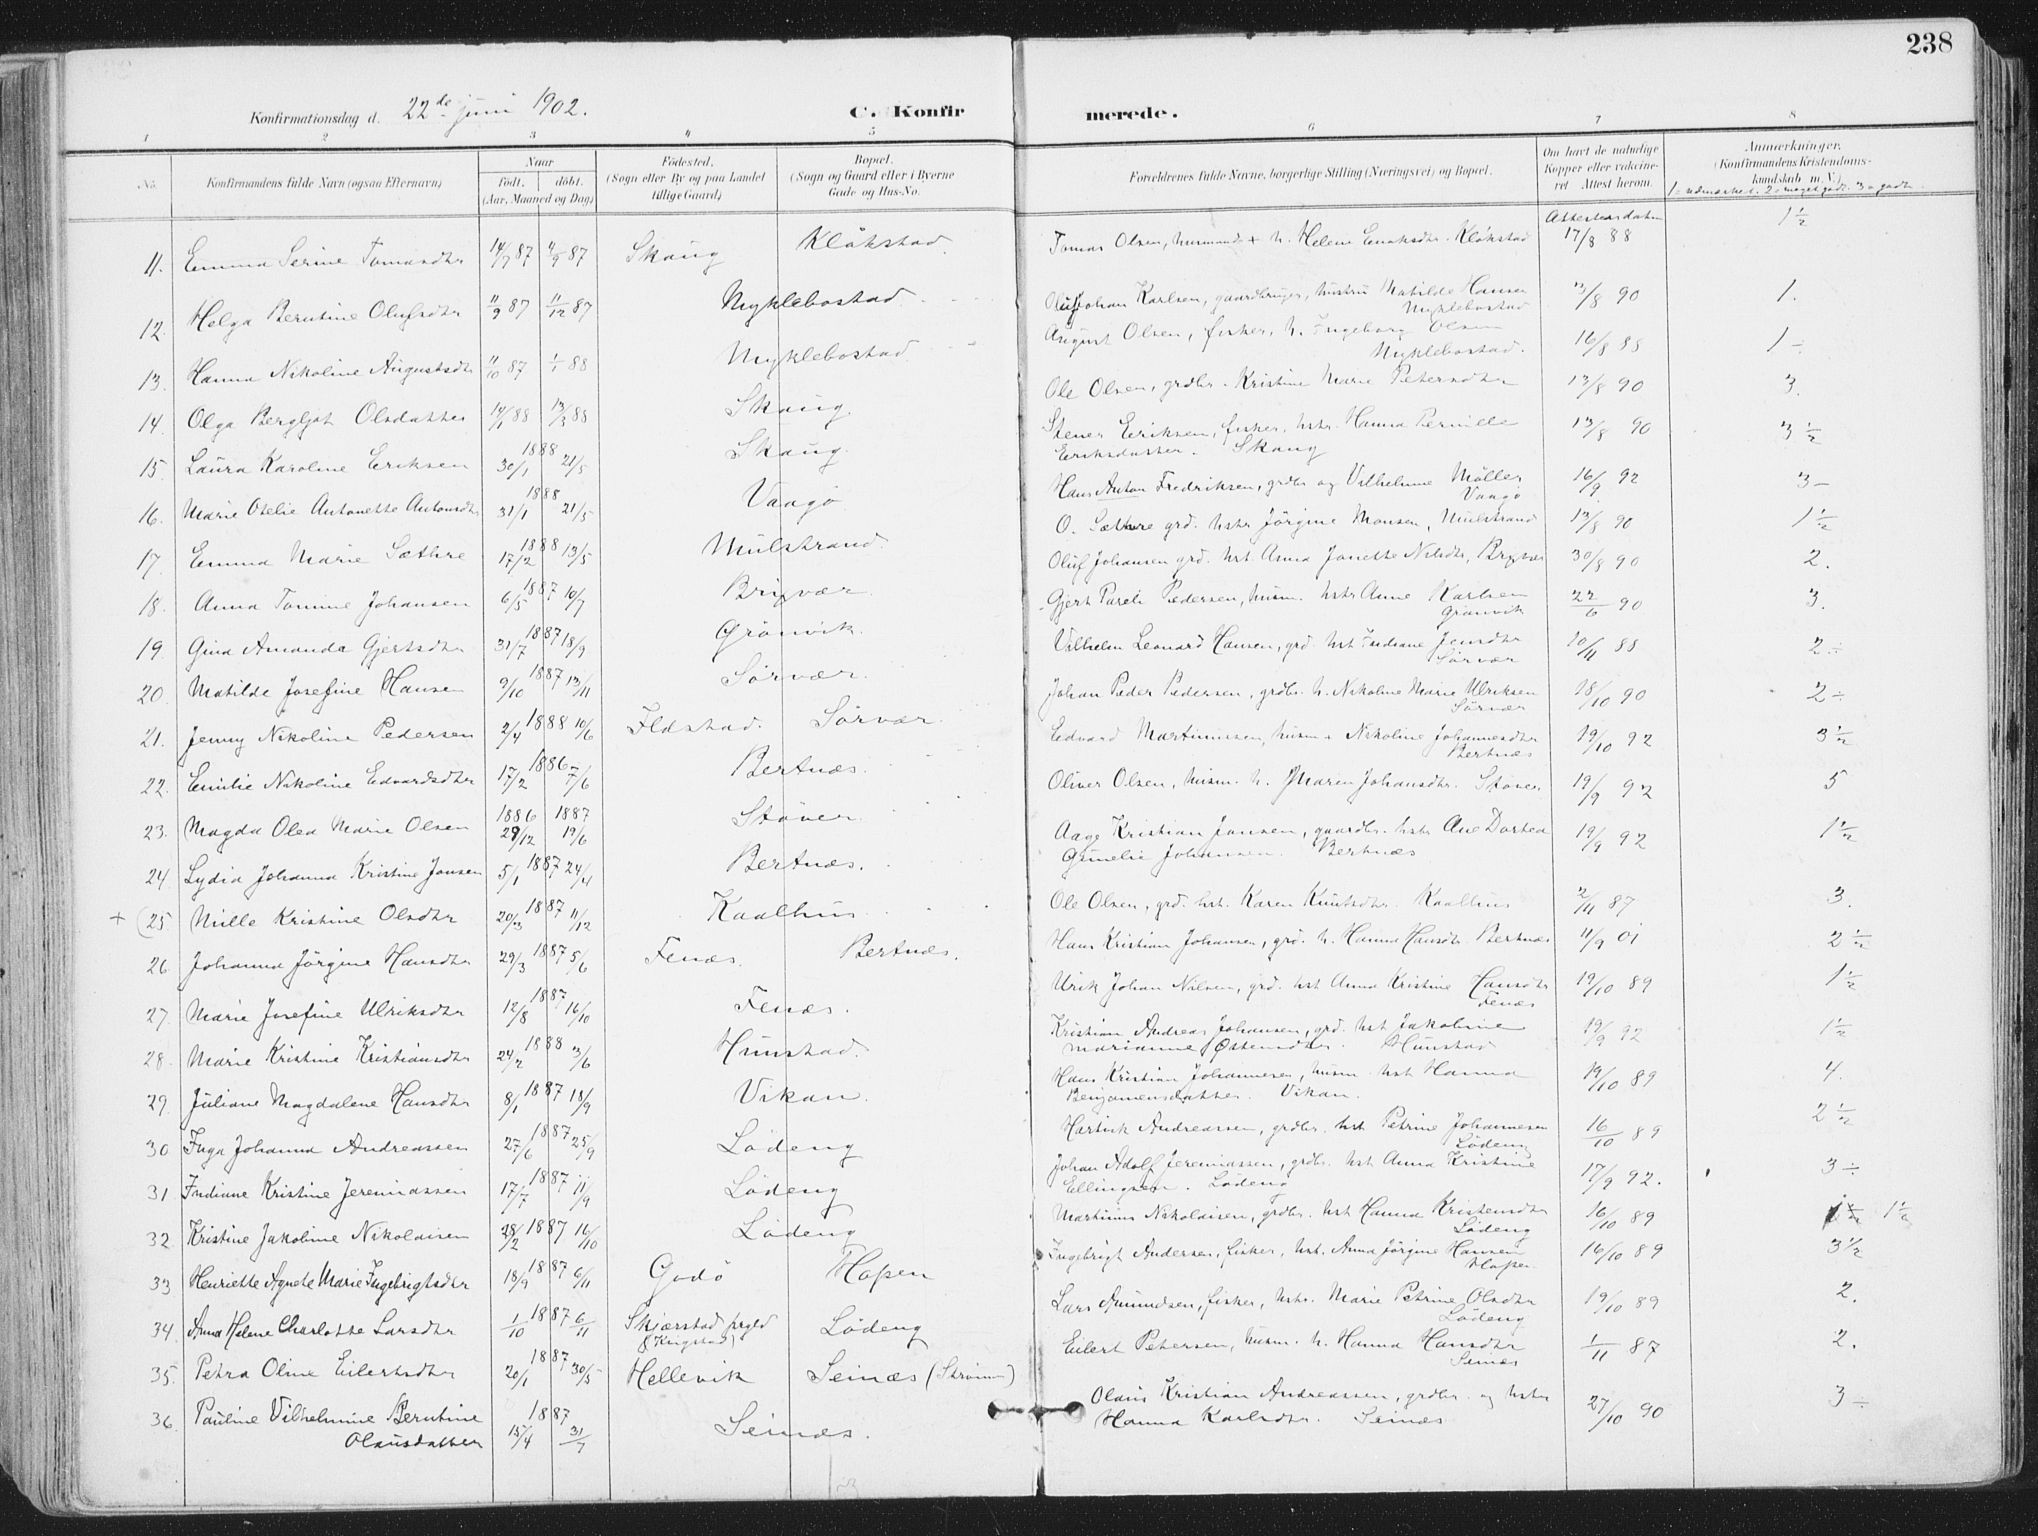 238
Konfirmationsdag d. 22de juni 1902.
C. Konfirmerede.
1 2 3 4 5 6 7 8
No. Konfirmandens fulde Navn (ogsaa Efternavn) Naar født. døbt. (Aar, Maaned og Dag) Födested. (Sogn eller By og paa Landet tillige Gaard) Bopæl. (Sogn og Gaard eller i Byerne Gade og Hus-No. Forældrenes fulde Navne, borgerlige Stilling (Næringsvei) og Bopæl. Om havt de naturlige Kopper eller vaccineret Attest herom. Anmærkninger. (Konfirmandens Kristendomskundskab m. V.)
1 = udmærket. 2 = meget godt. 3 = godt.
Attestens datum
11. Emma Serine Tomasdtr 14/7 87 4/9 87 Skaug Klökstad Tomas Olsen, husmand + h. Helene Enoksdtr. Klökstad 17/8 88 1 1/2
12. Helga Berntine Olufsdtr 11/9 87 11/12 87 Myklebostad Oluf Johan Karlsen, gaardbruger, hustru Matilde Hansen Myklebostad 13/8 90 1.
13. Hanna Nikoline Augustsdtr 11/10 87 1/1 88 Myklebostad August Olsen, fisker, h. Ingeborg Olsen Myklebostad. 16/8 88 1 ÷
14. Olga Bergljot Olsdatter 14/1 88 13/3 88 Skaug. Ole Olsen, grdbr. Kristine Marie Petersdtr 13/8 90 3.
15. Laura Karoline Eriksen 1888 30/1 21/5 Skaug. Stener Eriksen, fisker, hstr. Hanna Pernille Eriksdatter. Skaug 13/8 90 3 1/2
16. Marie Otelie Antonette Antonsdtr 1888 31/1 21/5 Vaagö Hans Anton Fredriksen, grdbr og Vilhelmine Möller Vaagö 16/9 92 3 -
17. Emma Marie Sæthre 1888 17/2 13/5 Mulstrand. O. Sæthre grd. hstr Jörgine Monsen, Mulstrand 13/8 90 1 1/2
18. Anna Tomine Johansen 1887 6/5 10/7 Brixvær Oluf Johansen grd. hst Anna Janette Nilsdtr, Brixvær 30/8 90 2.
19. Gina Amanda Gjertsdtr 1887 31/7 18/9 Grönvik. Gjert Pareli Pedersen, husm. hstr Anne Karlsen Grönvik 22/6 90 3.
20. Matilde Josefine Hansen 1887 9/10 13/11 Sörvær. Vilhelm Leonard Hansen, grd. hst Indiane Jensdtr Sörvær 20/11 88 2 ÷
21. Jenny Nikoline Pedersen 1888 2/4 10/6 Ildstad. Sörvær. Johan Peder Pedersen, grdbr. h. Nikoline Marie Ulriksen Sörvær 18/10 90 2 ÷
22. Emilie Nikoline Edvardsdtr 1886 17/2 7/6 Bertnæs. Edvard Martinussen, husm + Nikoline Johannesdtr Bertnæs 19/10 92 3 1/2
23. Magda Olea Marie Olsen 1886 29/12 1887 19/6 Stöver. Oliver Olsen, husm. h. Maren Johansdtr. Stöver 19/9 92 5
24. Lydia Johanna Kristine Jansen 1887 5/1 24/4 Bertnæs. Aage Kristian Jansen, gaardbr. hstr Ane Dortea Grinelie Johansen. Bertnæs 19/9 92 1 1/2
+ (25. Mille Kristine Olsdtr 1887 20/3 11/12 Kaalhus Ole Olsen, grd. hst. Karen Knutsdtr. Kaalhus 2/11 87 3.
26. Johanna Jörgine Hansdtr 1887 29/3 5/6 Fenæs. Bertnæs. Hans Kristian Johansen, grd. h. Hanna Hansdtr. Bertnæs 11/9 01 2 1/2
27. Marie Josefine Ulriksdtr 1887 12/8 16/10 Fenæs. Ulrik Johan Nilsen, grd. hst Anna Kristine Hansdtr Fenæs 19/10 89 1 1/2
28. Marie Kristine Kristiansdtr 1888 24/2 3/6 Hunstad. Kristian Andreas Johansen, grd. hst Jakobine Marianne Östensdtr. Hunstad 19/9 92 1 1/2
29. Juliane Magdalene Hansdtr 1887 8/1 18/9 Vikan. Hans Kristian Johannesen, husm. hst Hanna Benjamensdatter. Vikan. 19/10 89 4.
30. Inga Johanna Andreassen 1887 27/6 25/9 Lödeng Hartvik Andreassen, grdbr. hst Petrine Johannesen Lödeng 16/10 89 2 1/2
31. Indiane Kristine Jeremiassen 1887 17/7 11/9 Lödeng Johan Adolf Jeremiassen, grdbr. hst Anna Kristine Ellingsen. Lödeng 17/9 92. 3 ÷
32. Kristine Jakobine Nikolaisen 1887 28/2 16/10 Lödeng Martinus Nikolaisen, grdbr. hst Hanna Kristensdtr Lödeng 16/10 89 1 1/2
33. Henriette Agnete Marie Ingebrigtsdtr 1887 18/9 6/11 Godö Hopen Ingebrigt Andersen, fisker, hst. Anna Jörgine Hansen Hopen 16/10 89 3 1/2
34. Anna Helene Charlotte Larsdtr 1887 1/10 6/11 Skjærstad prgld Lödeng Lars Amundsen, fisker, hstr. Marie Petrine Olsdtr Lödeng 19/10 89 2.
35. Petra Oline Eilertsdtr 1887 20/1 30/5 Hellevik Seinæs (Strömm) Eilert Petersen, husm. h. Hanna Hansdtr Seinæs 1/11 87 2.
36. Pauline Vilhelmine Berntine Olausdatter 1887 15/4 31/7 Seinæs. Olaus Kristian Andreassen, grdbr. og hstr Hanna Karlsdtr. Seinæs 27/10 90 3 ÷